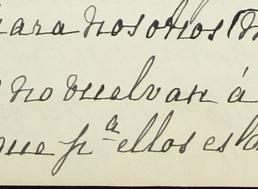 para nosotros
no vuelvan á
que pª ellos es